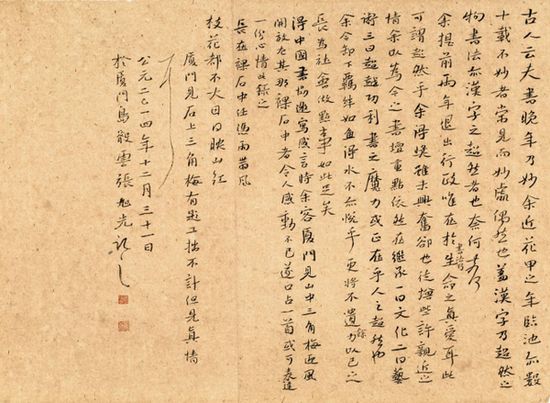 古人云夫書晚年乃妙余近花甲之年臨池亦數
十載不妙者常見而妙處偶然也蓋漢字乃超然之
物書法亦漢字之超然者也奈何
余提前兩年退出行政唯在於書法生命之真愛耳此
可謂超然乎余得娛雖未興奮卻也徒增些許親近之
情余以為今之書壇重點依然在繼承一曰文化二曰藝
三曰超越功利書之魔力或正在乎人之超然也
余今卸下羈絆如魚得水不亦悅乎更將不遺餘力以己之
長為社會做點事如此足矣
得中國書協邀寫感言時余客廈門見山中三角梅迎風
開放尤其那礫石中者令人感動不已遂口占一首或可表達
一份心情也錄之
長在礫石中任憑雨暮風
枝花都不大日日映山紅
廈門見石上三角梅有題工拙不計但見真情
公元二〇一四年十二月三十一日
於廈門島雲張旭光記之